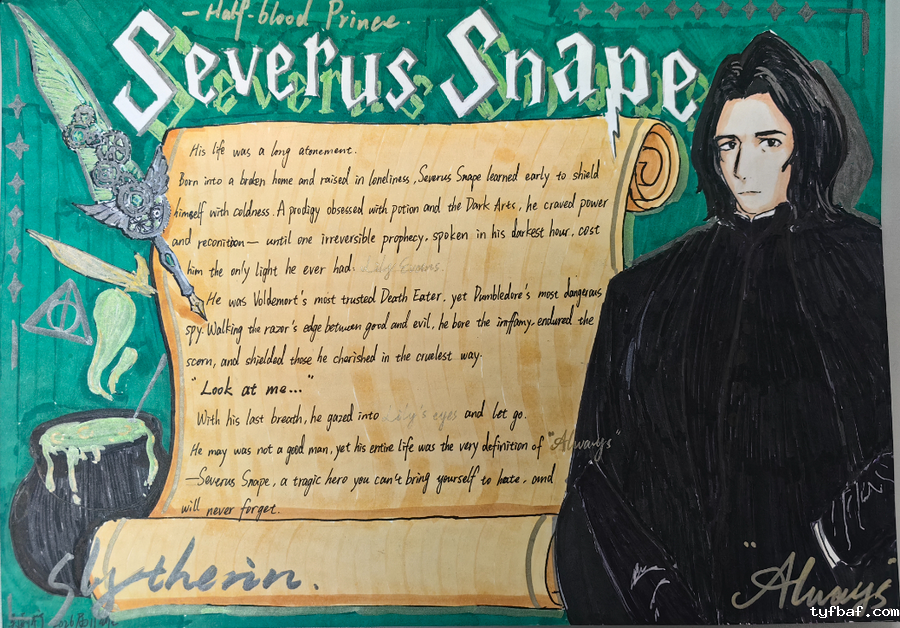 —Half-blood Prince.
Severus Snape
His life was a long atonement.
Born into a broken home and raised in loneliness, Severus Snape learned early to shield
himself with coldness. A prodigy obsessed with potion and the Dark Arts, he craved power
and reconitoon— until one irreversible prophecy, spoken in his darkest hour, cost
him the only light he ever had: Lily Evans.
He was Voldemort's most trusted Death Eater, yet Dumbledore's most dangerous
spy. Walking the razor's edge between good and evil, he bore the inffamy, endured the
scorn, and shielded those he cherished in the cruelest way.
"Look at me..."
With his last breath, he gazed into Lily's eyes and let go.
He may was not a good man, yet his entire life was the very definition of "Always"
—Severus Snape, a tragic hero you can't bring yourself to hate, and
will never forget.
Slytherin.
"Always"
tyfbaf.com